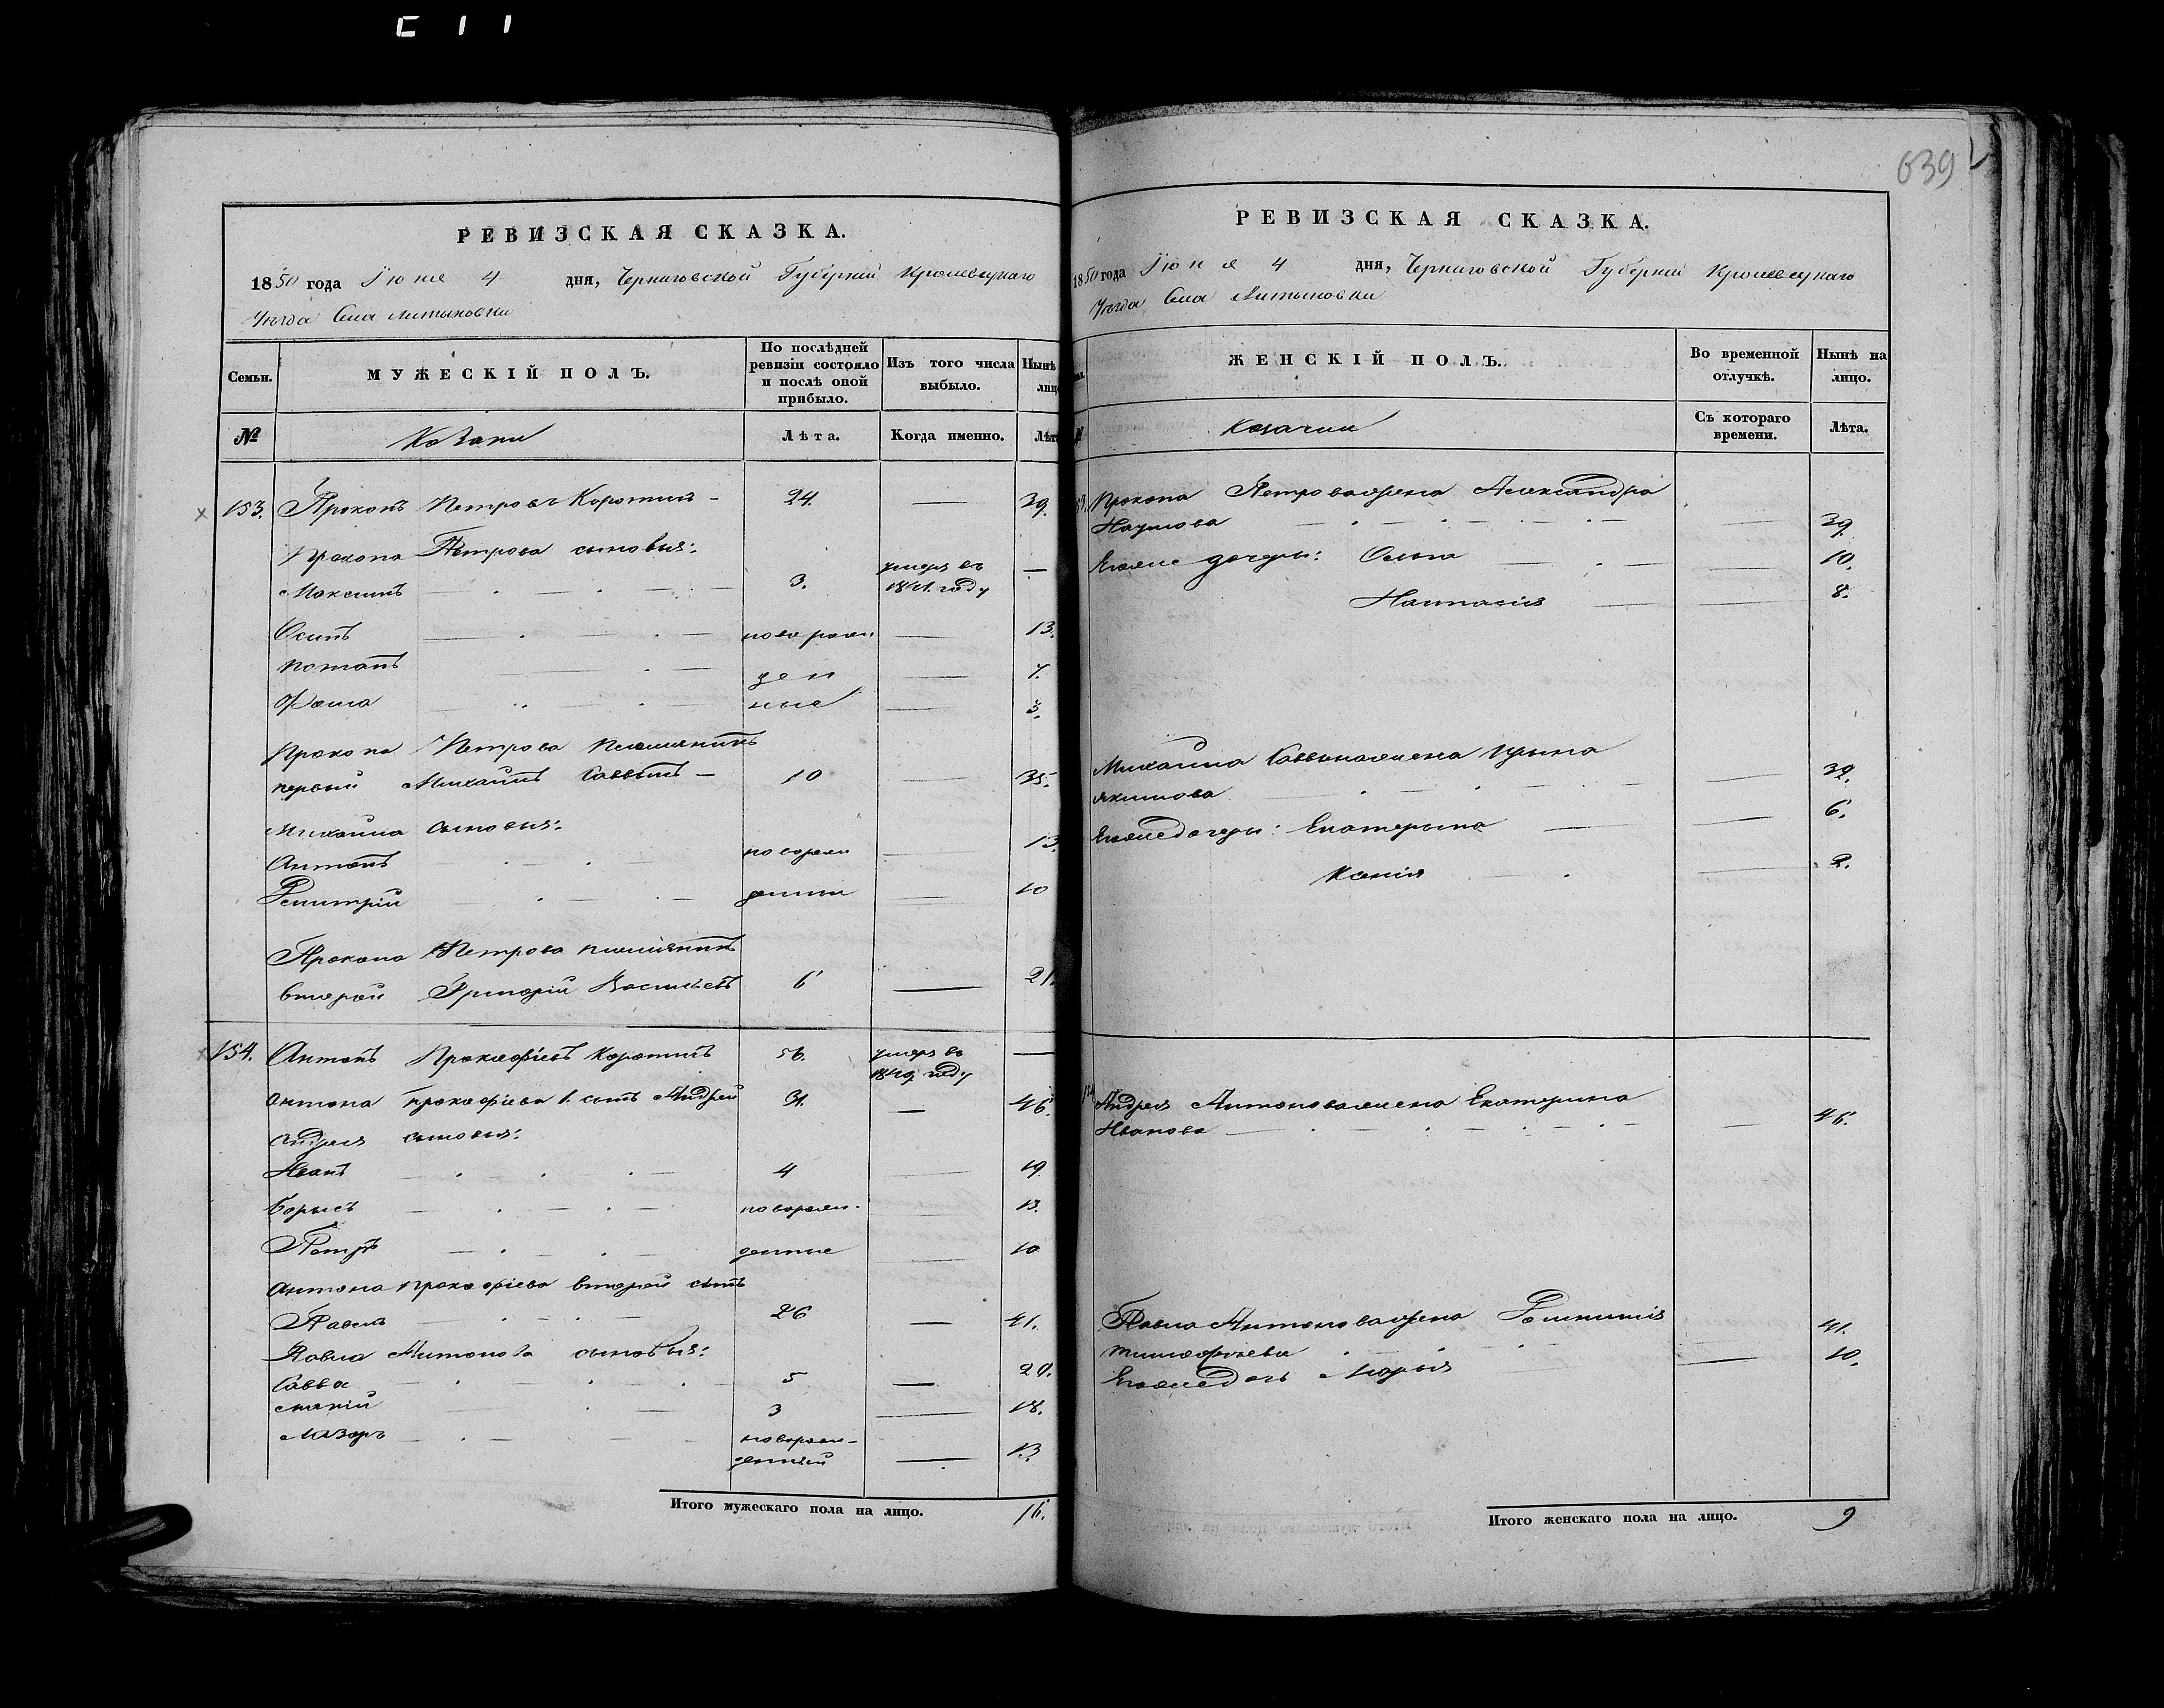 639
РЕВИЗСКАЯ СКАЗКА.
1850 года Іюня 4 дня, Черниговской Губерніи Кролевецкаго
Уѣзда Села Литыновки
Семьи.
МУЖЕСКІЙ ПОЛЪ.
По послѣдней ревизіи состояло и послѣ оной прибыло.
Изъ того числа выбыло.
Нынѣ
№
Козаки
Лѣта.
Когда именно.
153. Прокопъ Петровъ Коротинъ 24. — 39.
Прокопа Петрова сыновья:
Максимъ 3. умеръ въ 1841. году —
Осипъ новорож 13.
Потапъ ден 7.
Фома ные 3.
Прокопа Петрова племянникъ
первый Михайло Саввинъ 10 — 35.
Михайла Сыновья:
Антонъ новорож 13.
Дмитрій денные 10
Прокопа Петрова племянникъ
второй Григорій Васильевъ 6 — 21.
154. Антонъ Прокофіевъ Коротинъ 56. умеръ въ 1849. году —
Антона Прокофіева 1. сынъ Андрей 31. — 46.
Андрея сыновья:
Иванъ 4 — 19.
Борисъ новорож- 13.
Петръ денные 10
Антона Прокофіева второй сынъ
Павелъ 26 — 41.
Павла Антонова сыновья:
Савва 5 — 20.
3 — 18.
Лазарь новорож-
денный — 13.
Итого мужескаго пола на лицо. 16.
РЕВИЗСКАЯ СКАЗКА.
1850 года Іюня 4 дня, Черниговской Губерніи Кролевецкаго
Уѣзда Села Литыновки
ЖЕНСКІЙ ПОЛЪ.
Во временной отлучкѣ.
Нынѣ на лицо.
Козачки
Съ котораго времени.
Лѣта.
Прокопа Петрова жена Александра
Наумова 39.
Егоже дочери: Ольга 10.
Настасія 8.
Михайла Саввина жена Ирына
Якимова 32.
Егоже дочери: Екатерина 6.
Ксенія 2.
Андрея Антонова жена Екатерина
Иванова 46.
Павла Антонова жена
Тимофѣева 41.
Егоже дочь Марья 10.
Итого женскаго пола на лицо. 9